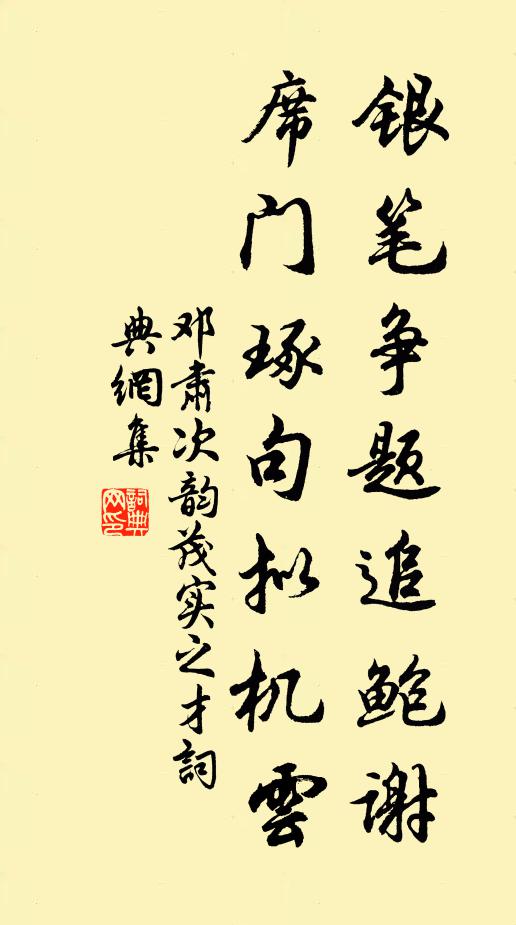 银笔争题追鲍谢
席门琢句拟机雲
邓肃次韵茂实之才詞
典網集
詞典网印